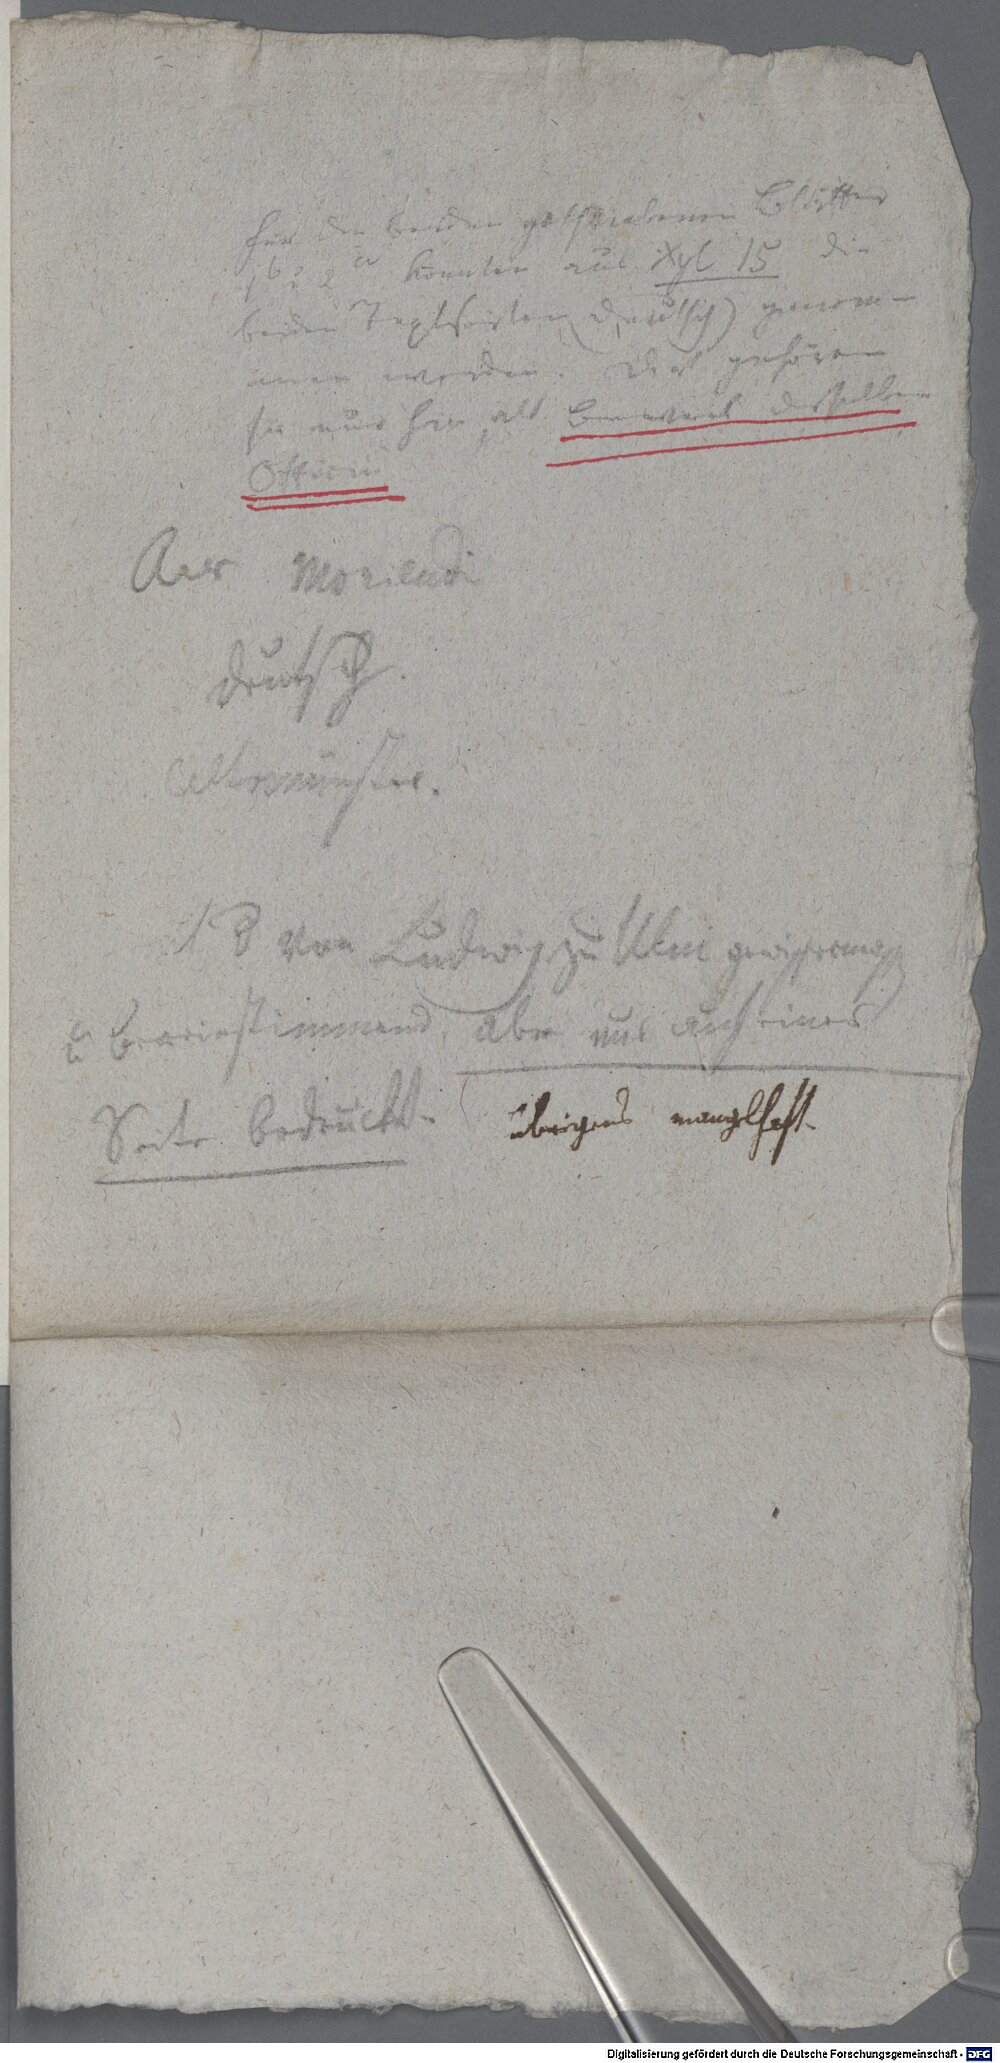 für die beiden geschriebenen Blätter
1b 2 a könnten aus Xyl 15 die
beiden Textseiten (Deutsch) genom-
men werden. Dort gehören
sie nur hin, als desselben
Officin
Ars Moriendi
deutsch.
Altomünster.
NB von Ludwig zu Ulm gewissermaß
übereinstimmend, aber nur auf einer
Seite bedruckt. übrigens mangelhaft.
Digitalisierung gefördert durch die Deutsche Forschungsgemeinschaft - DFG